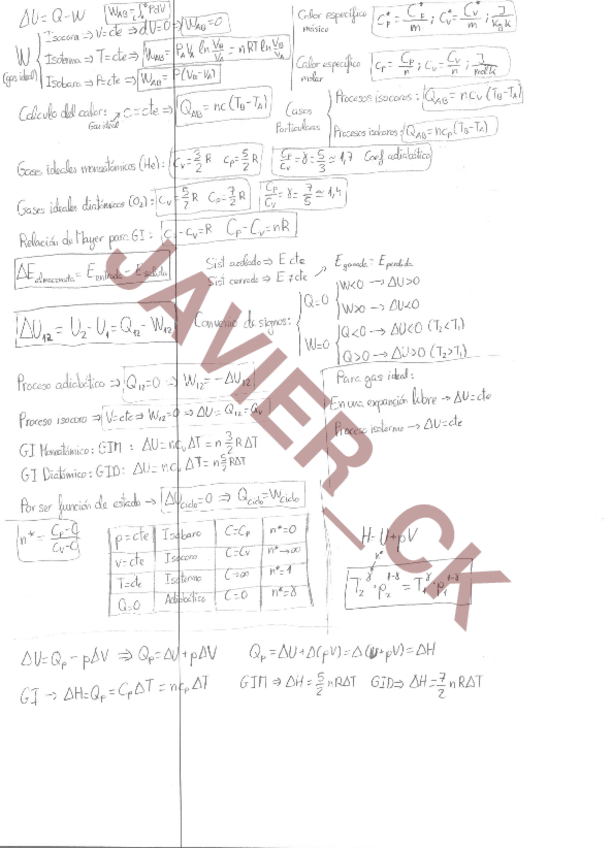 ΔU = Q - W
W_AB = ∫_A^B PdV
W (gas ideal)
Isocora ⇒ V=cte ⇒ dV=0 ⇒ W_AB=0
Isoterma ⇒ T=cte ⇒ W_AB = P_A V_A ln V_B/V_A = nRT ln V_B/V_A
Isobara ⇒ P=cte ⇒ W_AB = P(V_B - V_A)
Calor específico másico
C_p^* = C_p^*/m ; C_v^* = C_v^*/m ; J/kg k
Calor específico molar
c_p = C_p/n ; c_v = C_v/n ; J/mol k
Calculo del calor: C = cte ⇒ Q_AB = nc(T_B - T_A)
Gas ideal
Casos Particulares
Procesos isocoros: Q_AB = nc_v(T_B - T_A)
Procesos isobaros: Q_AB = nc_p(T_B - T_A)
Gases ideales monoatómicos (He): c_v = 3/2 R c_p = 5/2 R
C_p/C_v = γ = 5/3 ≃ 1,7 Coef adiabático
Gases ideales diatómicos (O2): c_v = 5/2 R c_p = 7/2 R
C_p/C_v = γ = 7/5 ≃ 1,4
Relación de Mayer para GI: c_p - c_v = R C_p - C_v = nR
ΔE almacenada = E entrada - E salida
Sist aislado ⇒ E cte
Sist cerrado ⇒ E ≠ cte
E ganada = E perdida
ΔU12 = U2 - U1 = Q12 - W12
Convenio de signos:
Q=0
W<0 → ΔU>0
W>0 → ΔU<0
W=0
Q<0 → ΔU<0 (T2<T1)
Q>0 → ΔU>0 (T2>T1)
Proceso adiabático ⇒ Q12=0 ⇒ W12 = -ΔU12
Proceso isocoro ⇒ V=cte ⇒ W12=0 ⇒ ΔU = Q12 = Q_v
Para gas ideal:
En una expansión libre → ΔU=cte
Proceso isotermo → ΔU=cte
GI Monoatómico: GIM: ΔU = nc_vΔT = n 3/2 RΔT
GI Diatómico: GID: ΔU = nc_vΔT = n 5/2 RΔT
Por ser función de estado → ΔU ciclo = 0 ⇒ Q ciclo = W ciclo
n* = C_p - C / C_v - C
p=cte Isobaro C=C_p n*=0
v=cte Isocoro C=C_v n*→∞
T=cte Isotermo C=∞ n*=1
Q=0 Adiabático C=0 n*=γ
H = U + pV
T_2^γ · p_2^{1-γ} = T_1^γ · p_1^{1-γ}
ΔU = Q_p - pΔV ⇒ Q_p = ΔU + pΔV Q_p = ΔU + Δ(pV) = Δ(U+pV) = ΔH
GI → ΔH = Q_p = C_pΔT = nc_pΔT GIM ⇒ ΔH = 5/2 nRΔT GID ⇒ ΔH = 7/2 nRΔT
JAVIER_CK